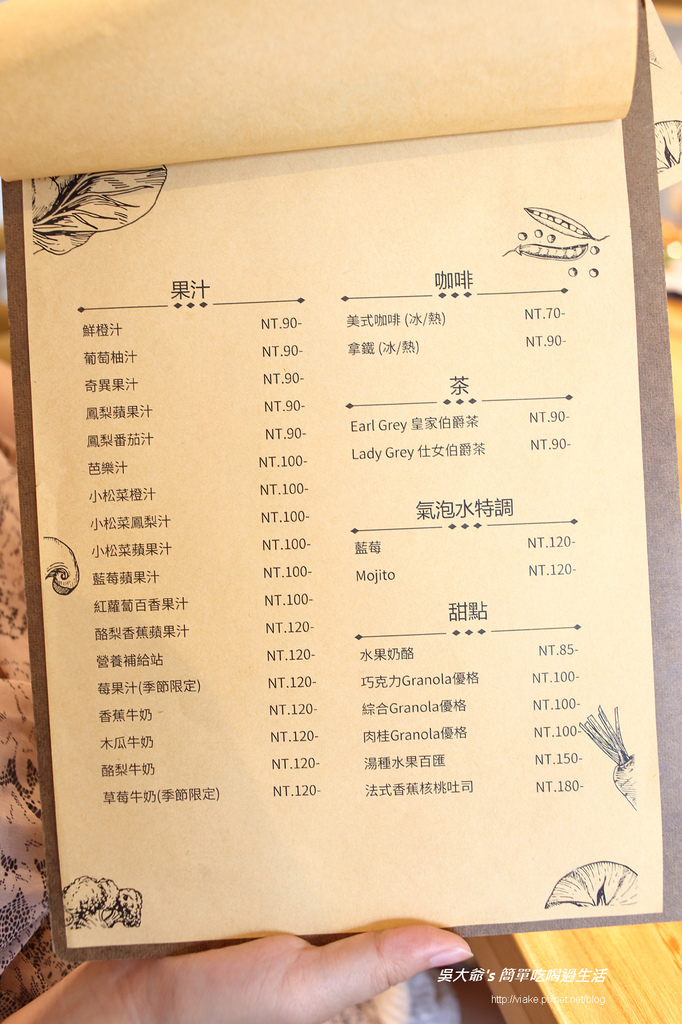 果汁
鮮橙汁 NT.90-
葡萄柚汁 NT.90-
奇異果汁 NT.90-
鳳梨蘋果汁 NT.90-
鳳梨番茄汁 NT.90-
芭樂汁 NT.100-
小松菜橙汁 NT.100-
小松菜鳳梨汁 NT.100-
小松菜蘋果汁 NT.100-
藍莓蘋果汁 NT.100-
紅蘿蔔百香果汁 NT.100-
酪梨香蕉蘋果汁 NT.120-
營養補給站 NT.120-
莓果汁(季節限定) NT.120-
香蕉牛奶 NT.120-
木瓜牛奶 NT.120-
酪梨牛奶 NT.120-
草莓牛奶(季節限定) NT.120-
咖啡
美式咖啡 (冰/熱) NT.70-
拿鐵 (冰/熱) NT.90-
茶
Earl Grey 皇家伯爵茶 NT.90-
Lady Grey 仕女伯爵茶 NT.90-
氣泡水特調
藍莓 NT.120-
Mojito NT.120-
甜點
水果奶酪 NT.85-
巧克力Granola優格 NT.100-
綜合Granola優格 NT.100-
肉桂Granola優格 NT.100-
湯種水果百匯 NT.150-
法式香蕉核桃吐司 NT.180-
吳大爺's 簡單吃喝過生活
http://viake.pixnet.net/blog